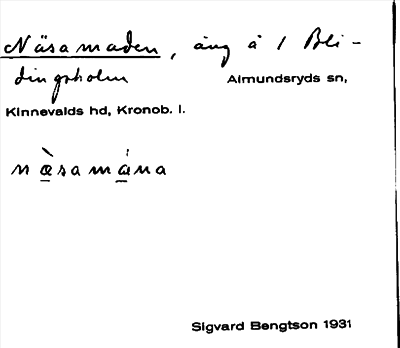 Näsamaden, äng å 1 Bli-
dingsholm Almundsryds sn,
Kinnevalds hd, Kronob. l.
næ̀samána
Sigvard Bengtson 1931